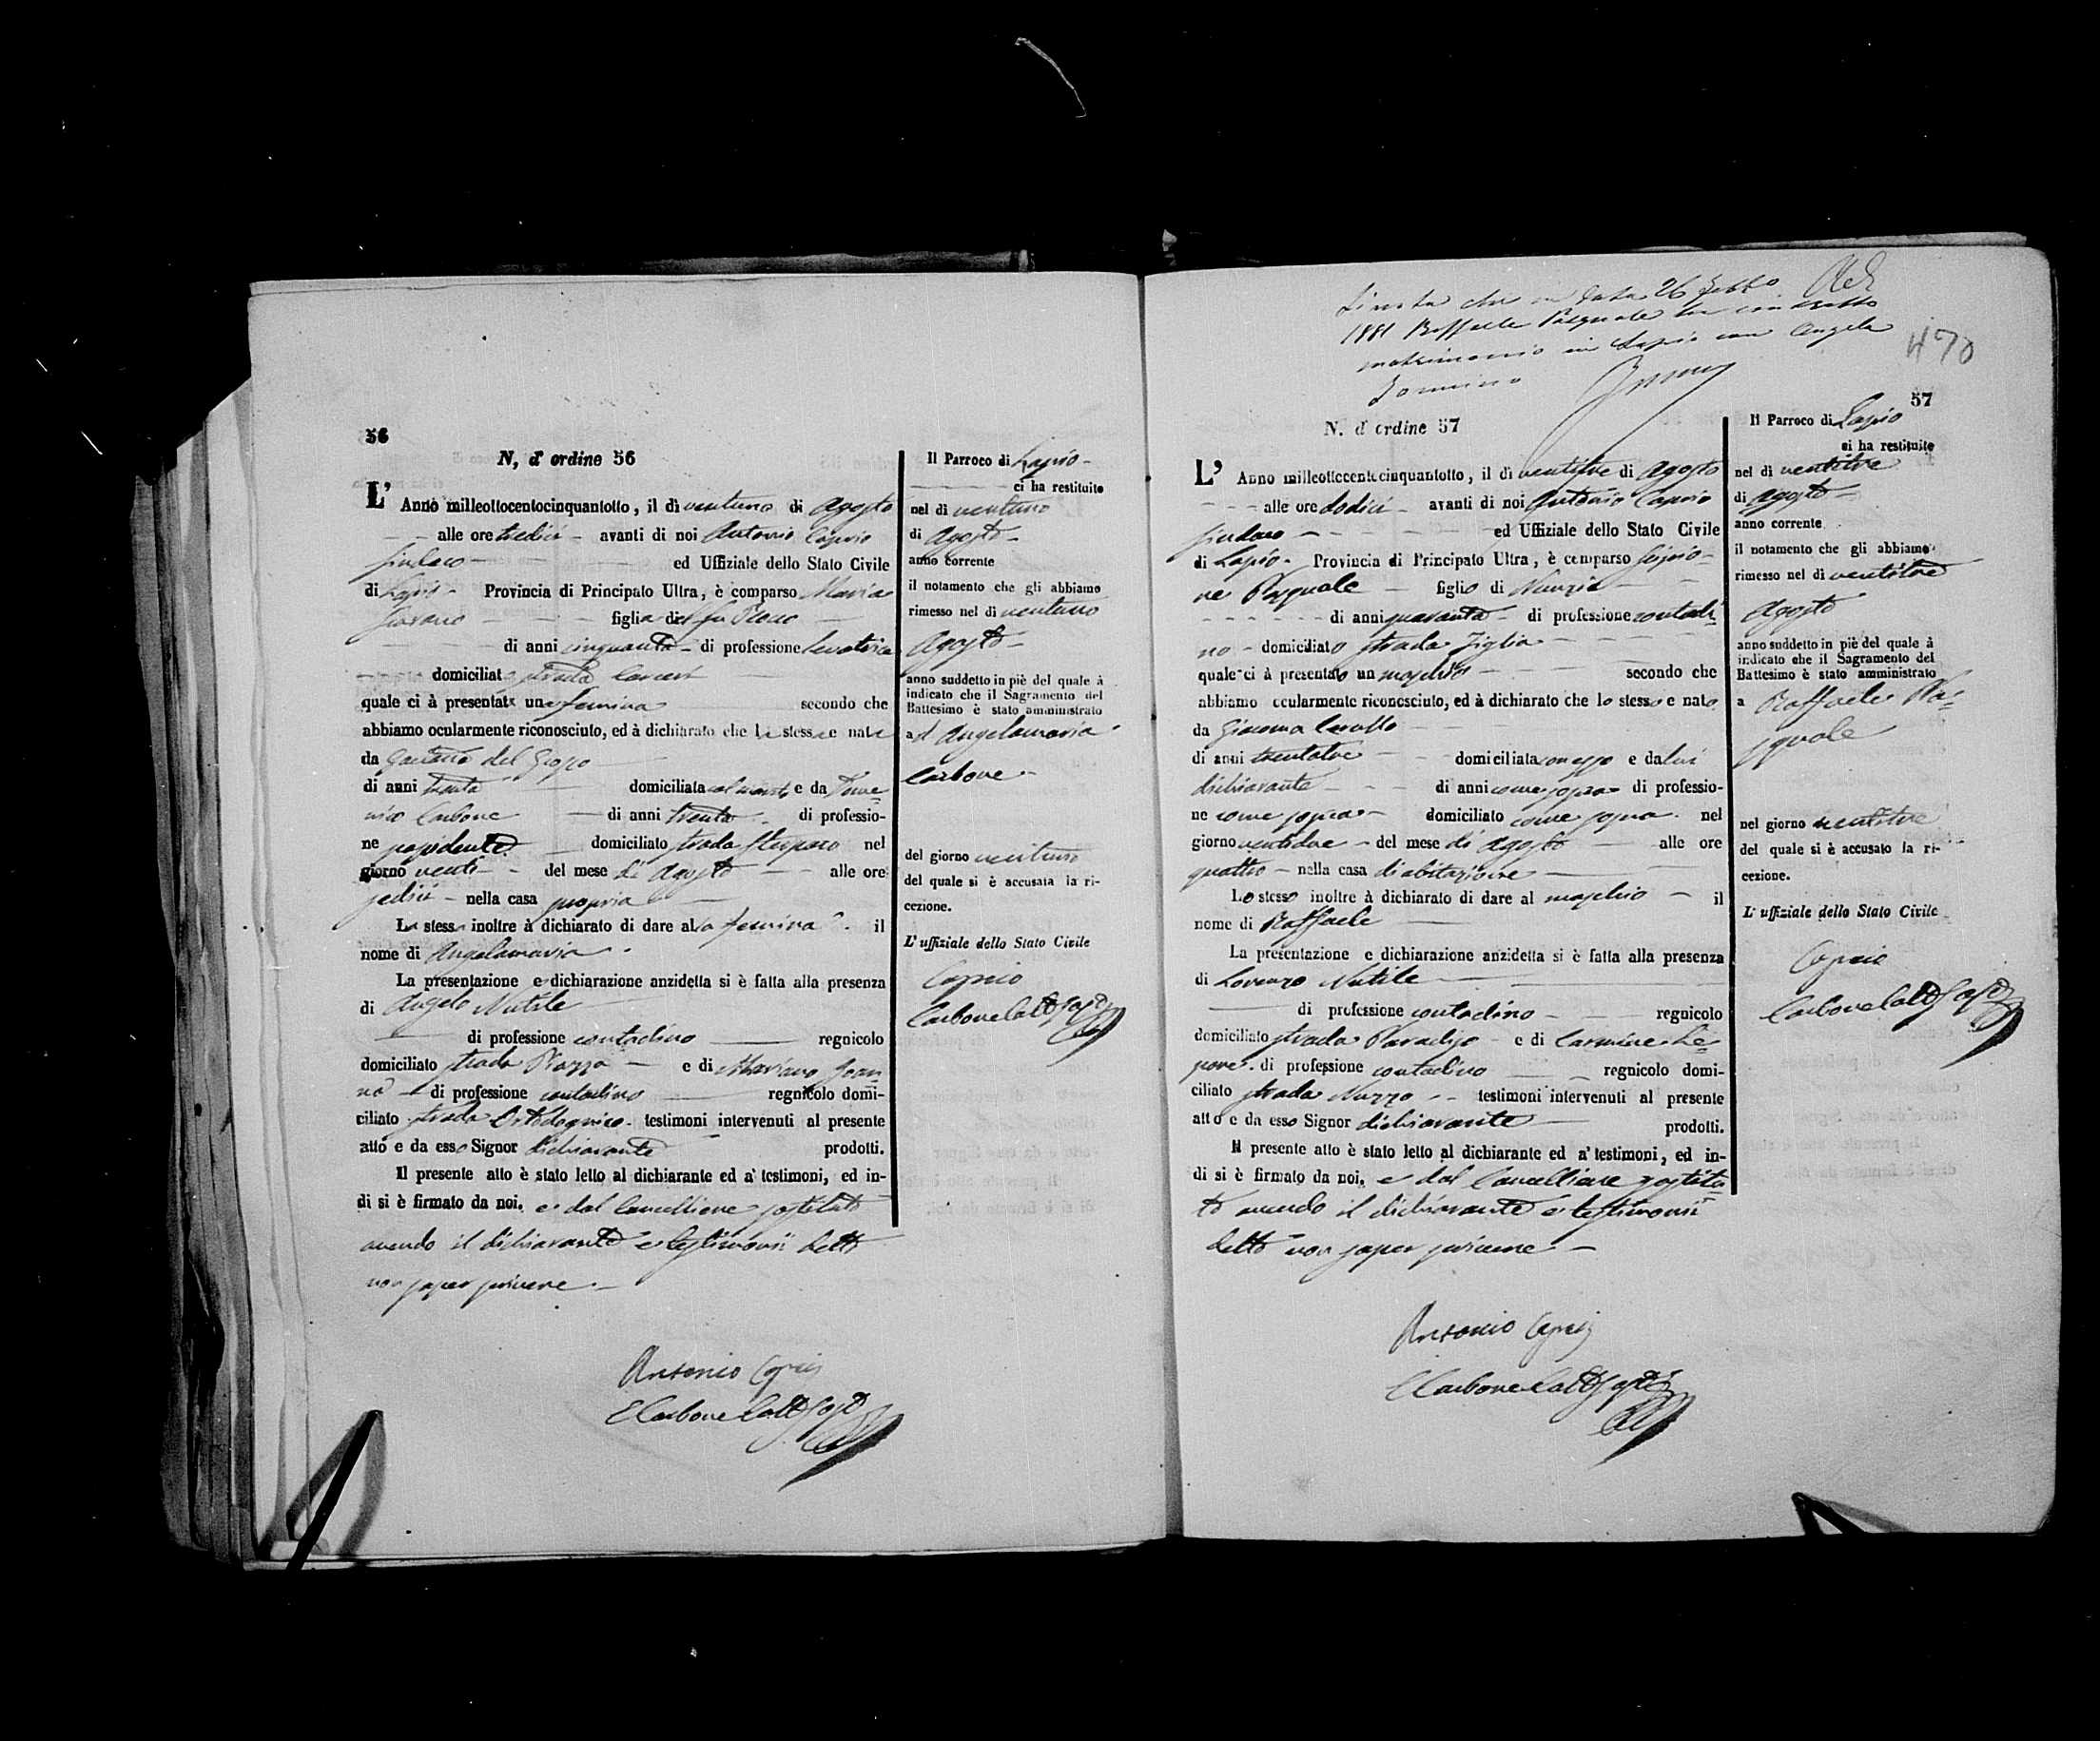 56
N, d' ordine 56
L' Anno milleottocentocinquantotto, il dì ventuno di Agosto
alle ore tredici avanti di noi Antonio Caprio
Sindaco ed Uffiziale dello Stato Civile
di Lapio Provincia di Principato Ultra, è comparso Maria
figlia del fu
di anni cinquanta di professione levatrice
domiciliata strada Carceri
quale ci à presentata una femina secondo che
abbiamo ocularmente riconosciuto, ed à dichiarato che la stessa e nata
da Gaetana del Grosso
di anni trenta domiciliata col marito e da Dome-
nico Carbone di anni trenta di professio-
ne possidente domiciliato strada nel
giorno venti del mese di Agosto alle ore
sedici nella casa propria
La stessa inoltre à dichiarato di dare alla femina il
nome di Angelamaria
La presentazione e dichiarazione anzidetta si è fatta alla presenza
di Angelo Nutile
di professione contadino regnicolo
domiciliato strada Piazza e di Mariano
di professione contadino regnicolo domi-
ciliato strada testimoni intervenuti al presente
atto e da esso Signor dichiarante prodotti.
Il presente atto è stato letto al dichiarante ed a' testimoni, ed in-
di si è firmato da noi, e dal Cancelliere sostituto
avendo il dichiarante e testimonii detto
non saper scrivere
Antonio Caprio
E Carbone
Il Parroco di Lapio
ci ha restituito
nel dì ventuno
di Agosto
anno corrente
il notamento che gli abbiamo
rimesso nel dì ventuno
Agosto
anno suddetto in piè del quale à
indicato che il Sagramento del
Battesimo è stato amministrato
ad Angelamaria
Carbone
del giorno ventuno
del quale si è accusata la ri-
cezione.
L' uffiziale dello Stato Civile
Caprio
Carbone
Si nota che in data 26 Febb°
1881 Raffaele Pasquale ha contratto
matrimonio in Lapio con Angela
470
57
N. d' ordine 57
L' Anno milleottocentocinquantotto, il dì ventitre di Agosto
alle ore dodici avanti di noi Antonio Caprio
Sindaco ed Uffiziale dello Stato Civile
di Lapio Provincia di Principato Ultra, è comparso Scipio-
ne Pasquale figlio di Nunzio
di anni quaranta di professione contadi-
no domiciliato strada Figlia
quale ci à presentato un maschio secondo che
abbiamo ocularmente riconosciuto, ed à dichiarato che lo stesso e nato
da Giacoma Carullo
di anni trentatre domiciliata con esso e da lui
dichiarante di anni come sopra di professio-
ne come sopra domiciliato come sopra nel
giorno ventidue del mese di Agosto alle ore
quattro nella casa di abitazione
Lo stesso inoltre à dichiarato di dare al maschio il
nome di Raffaele
La presentazione e dichiarazione anzidetta si è fatta alla presenza
di Lorenzo Nutile
di professione contadino regnicolo
domiciliato strada Paradiso e di Carmine Le-
pore di professione contadino regnicolo domi-
ciliato strada Nuzzo testimoni intervenuti al presente
atto e da esso Signor dichiarante prodotti.
Il presente atto è stato letto al dichiarante ed a' testimoni, ed in-
di si è firmato da noi, e dal Cancelliere sostitu-
to avendo il dichiarante e testimonii
detto non saper scrivere
Antonio Caprio
E Carbone
Il Parroco di Lapio
ci ha restituito
nel dì ventitre
di Agosto
anno corrente
il notamento che gli abbiamo
rimesso nel dì ventitre
Agosto
anno suddetto in piè del quale à
indicato che il Sagramento del
Battesimo è stato amministrato
a Raffaele Pa-
squale
nel giorno ventitre
del quale si è accusato la ri-
cezione.
L' uffiziale dello Stato Civile
Caprio
Carbone